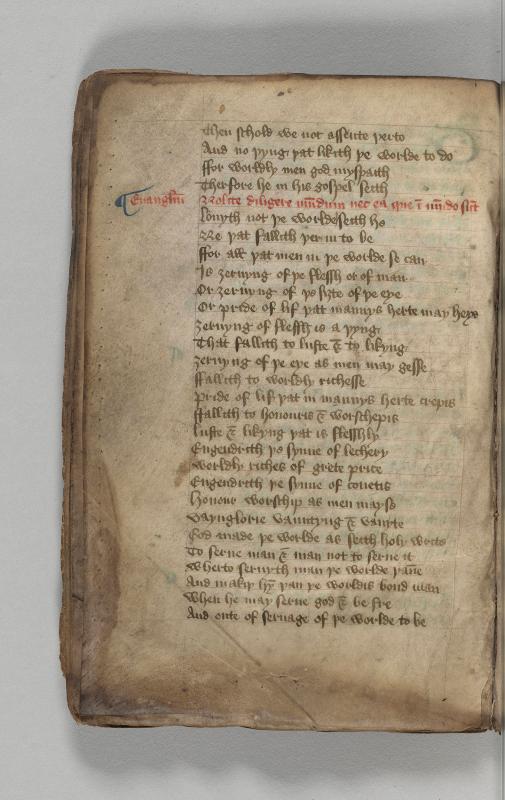 Then schold we not assente þerto
And no þyng þat likith þe worlde to do
ffor worldly men god myspaith
Therfore he in his gospel seith
Euangliū Nolite diligere mūdum nec ea que ī mūdo sūt
louyth not þe worlde seith he
Ne þat fallith þer in to be
ffor all þat men in þe worlde se can
Is ȝernyng of þe flessh or of man
Or ȝernyng of þo siȝte of þe eye
Or pride of lif þat mannys herte may heye
ȝernyng of flessh is a þyng
That fallith to luste & to likyng
ȝernyng of þe eye as men may gesse
ffallith to worldly richesse
Pride of lif þat in mannys herte crepis
ffallith to honouris & worschepis
luste & likyng þat is flesshly
Engendrith þo synne of lechery
worldly riches of grete price
Engendrith þe synne of couetis
Honour worship as men may se
Vaynglorie vauntyng & vanyte
God made þe worlde as seith holy write
To serue man & man not to serue it
Wherto seruyth man þe worlde þāne
And makiþ hȳ þan þe worldis bond man
When he may serue god & be fre
And oute of seruage of þe worlde to be